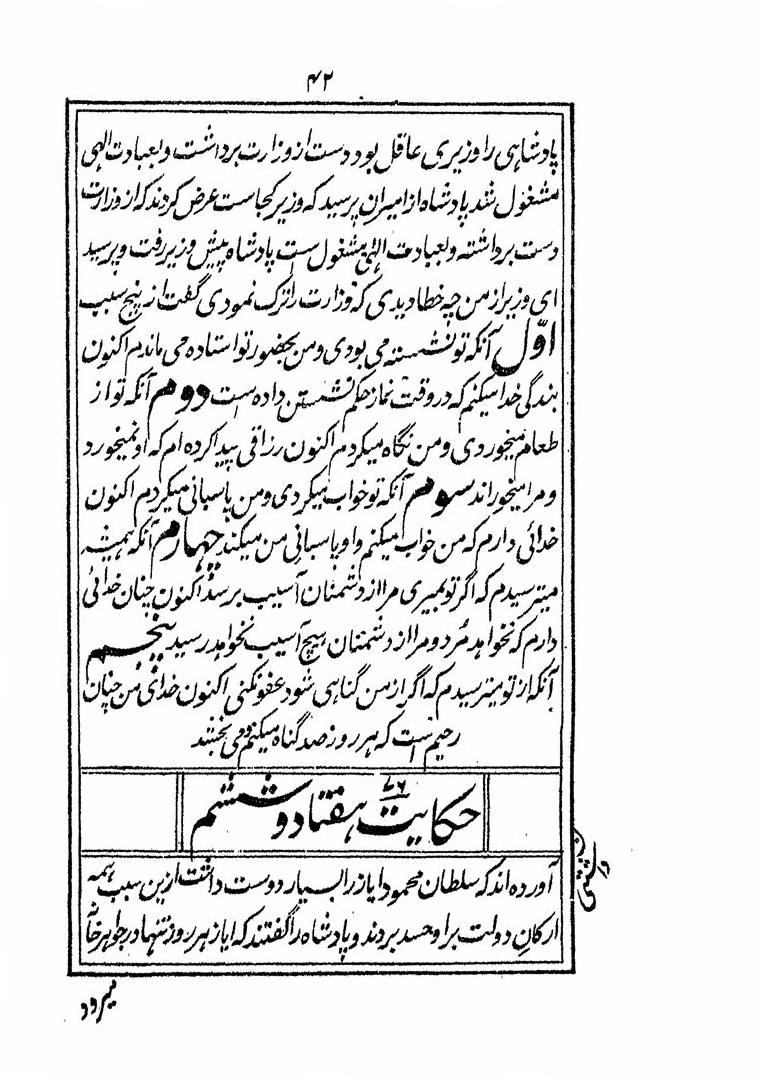 ۴۲
پادشاهی را وزیری عاقل بود دست از وزارت برداشت و بعبادت الهی
مشغول شد پادشاه از امیران پرسید که وزیر کجاست عرض کردند که از وزارت
دست برداشته و بعبادت الهی مشغول ست پادشاه پیش وزیر رفت و پرسید
ای وزیر از من چه خطا دیدی که وزارت را ترک نمودی گفت از پنج سبب
اوّل آنکه تو نشسته می بودی و من بحضور تو استاده می ماندم اکنون
بندگی خدا میکنم که در وقت نماز حکم نشستن داده است دوم آنکه تو از
طعام میخوردی و من نگاه میکردم اکنون رزاقی پیدا کرده ام که او نمیخورد
و مرا میخوراند سوم آنکه تو خواب میکردی و من پاسبانی میکردم اکنون
خدائی دارم که من خواب میکنم و او پاسبانی من میکند چهارم آنکه همیشه
میترسیدم که اگر تو بمیری مرا از دشمنان آسیب برسد اکنون چنان خدائی
دارم که نخواهد مُرد و مرا از دشمنان هیچ آسیب نخواهد رسید پنجم
آنکه از تو میترسیدم که اگر از من گناهی شود عفو نکنی اکنون خدای من چنان
رحیم است که هر روز صد گناه میکنم و می بخشد
حکایت ۷۶ هفتاد و ششم
آورده اند که سلطان محمود ایاز را بسیار دوست داشت ازین سبب همه
ارکان دولت بر او حسد بردند و پادشاه را گفتند که ایاز هر روز تنها در جواهر خانه
میرود